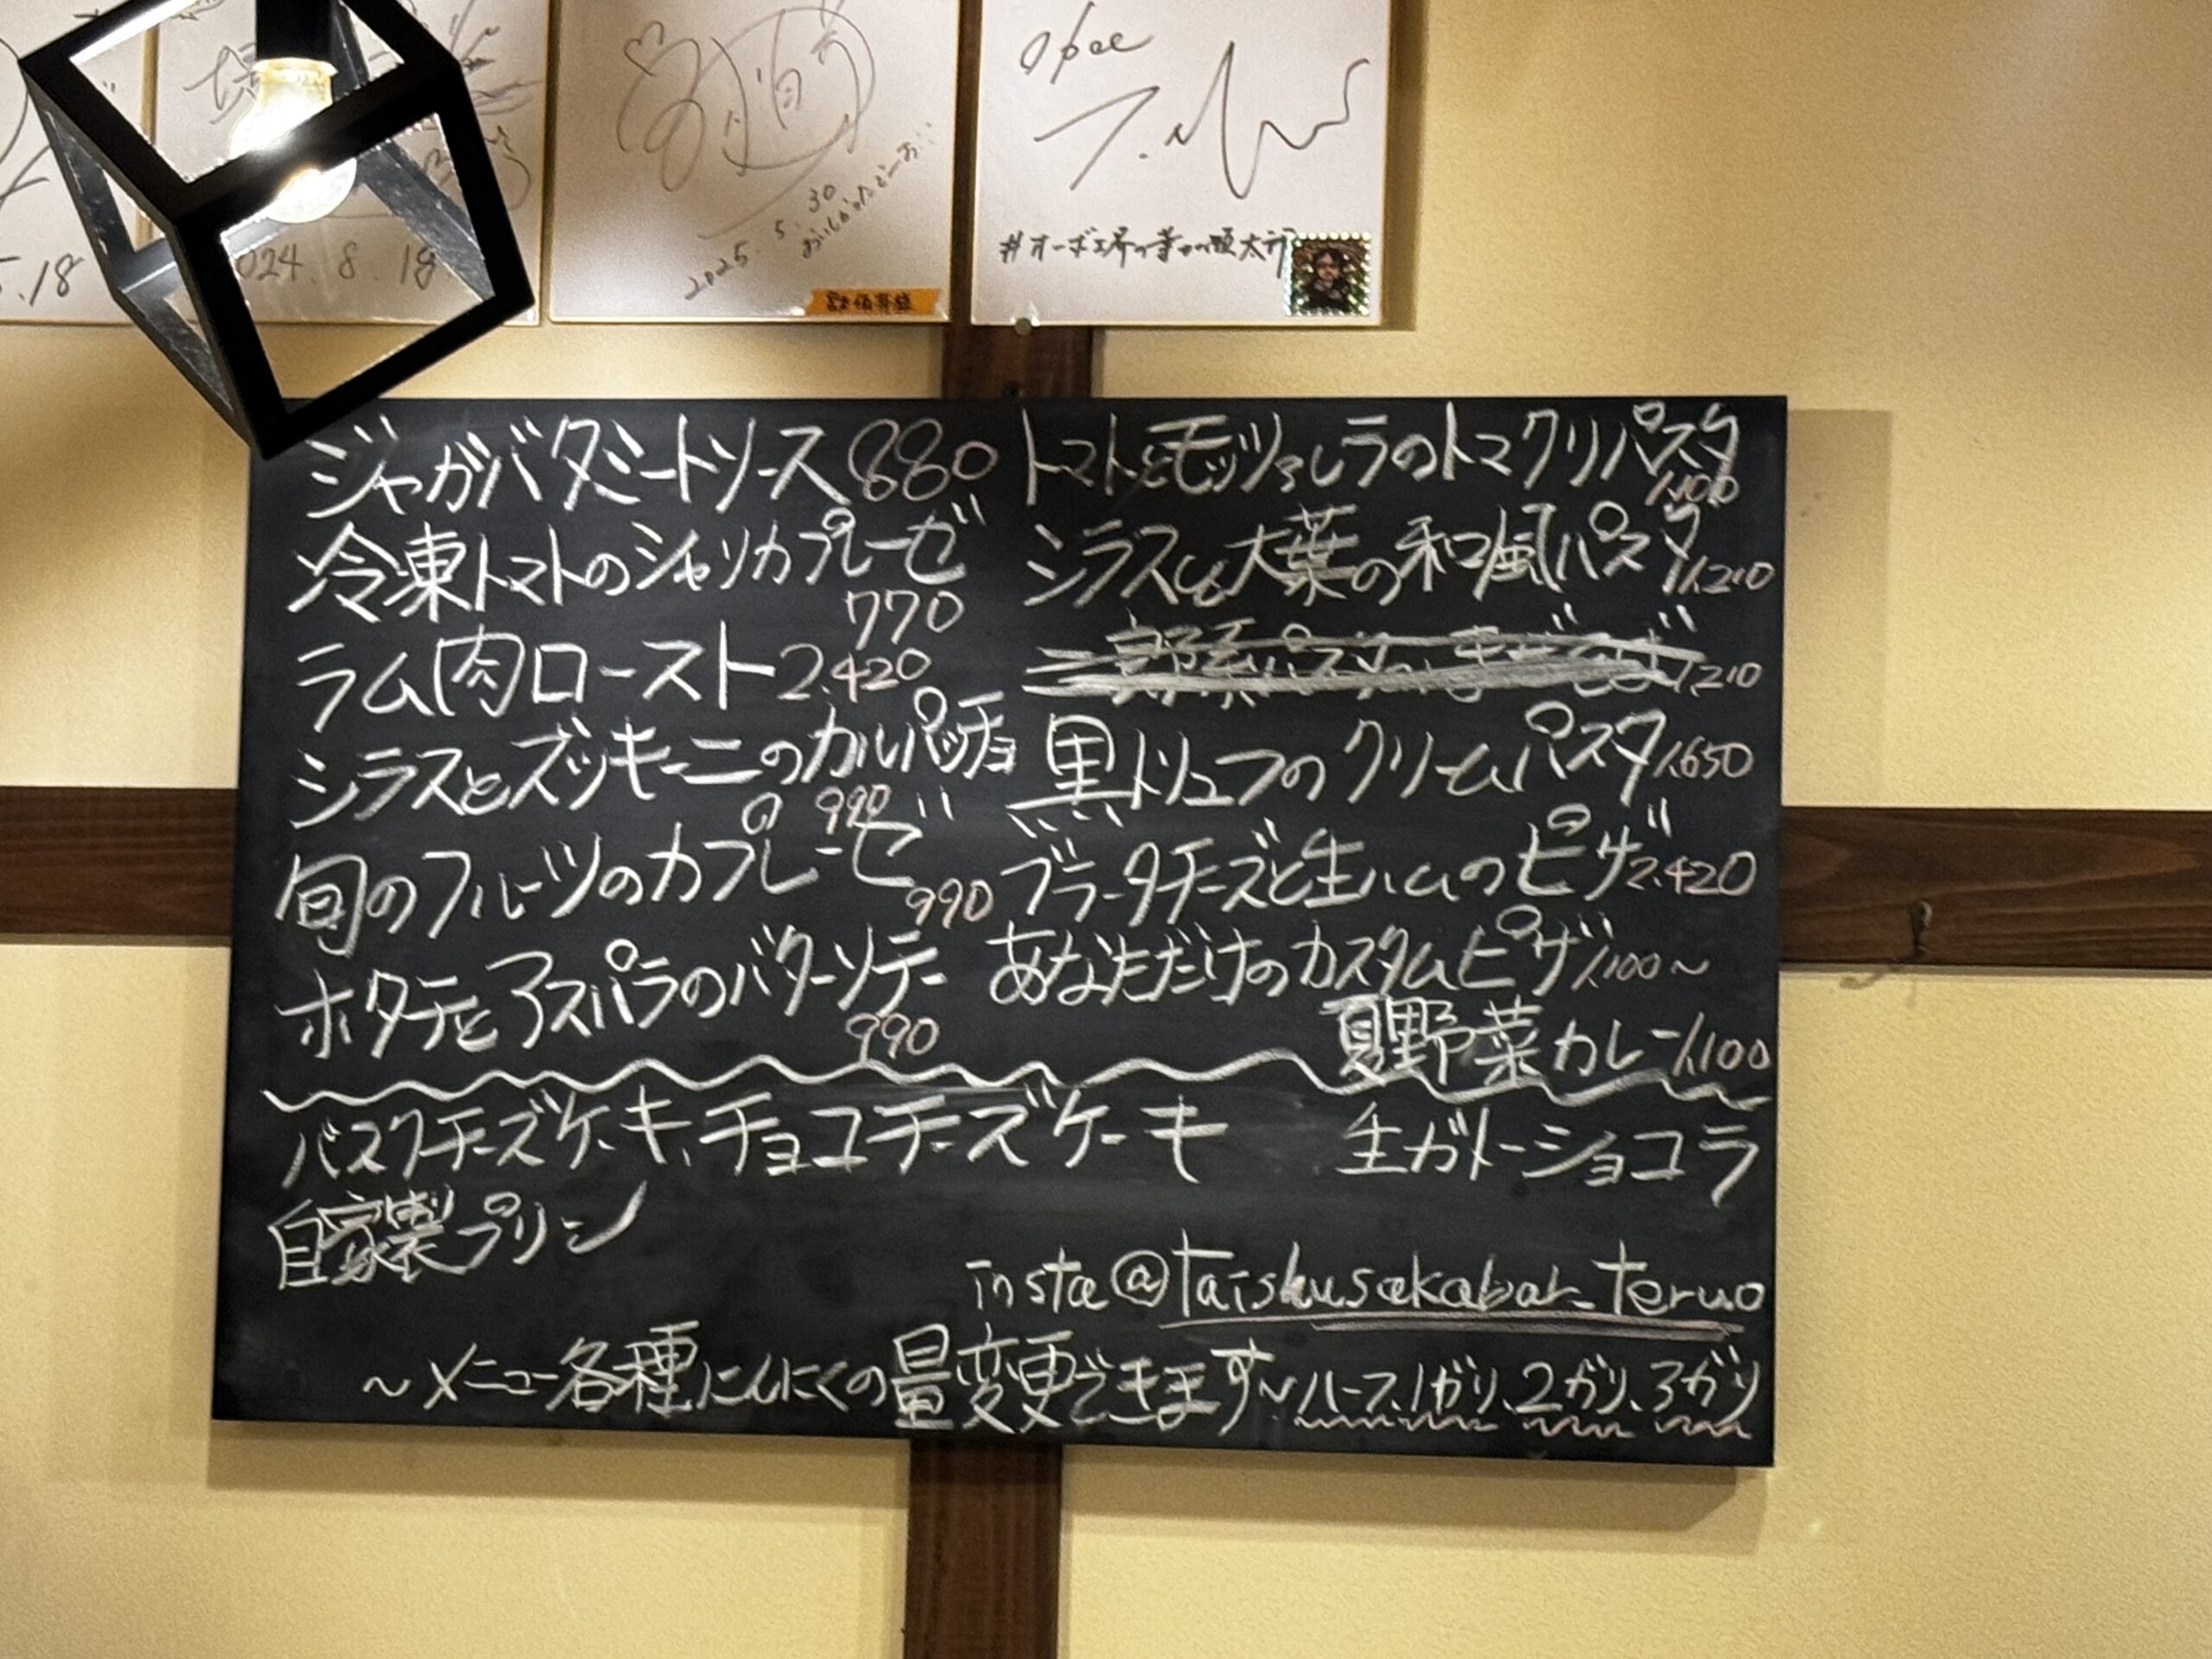 Oboe
2024.8.18
5.18
2025.5.30
ジャガバタミートソース 880
冷凍トマトのシャリカプレーゼ
770
ラム肉ロースト 2.420
シラスとズッキーニのカルパッチョ
990
旬のフルーツのカプレーゼ
990
ホタテとアスパラのバターソテー
990
トマトとモッツァレラのトマクリパスタ
1.100
シラスと大葉の和風パスタ 1.210
1.210
黒トリュフのクリームパスタ 1.650
ブラータチーズと生ハムのピザ 2.420
あなただけのカスタムピザ 1.100〜
夏野菜カレー 1.100
バスクチーズケーキ、チョコチーズケーキ 生ガトーショコラ
自家製プリン
insta@taishusakabar_teruo
〜メニュー各種にんにくの量変更できます〜ハーフ、1ガリ、2ガリ、3ガリ